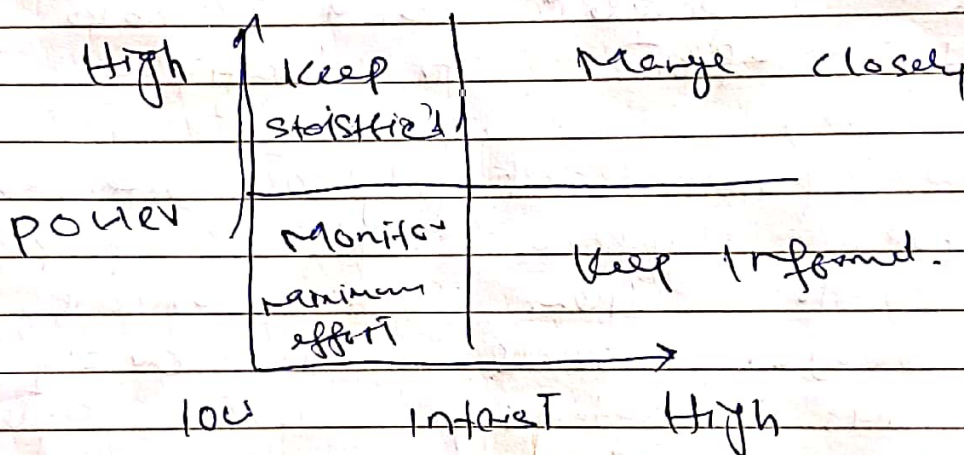 High
Keep
Stoisfied
Mange closely
power
Monitor
maninum
effort
Keep Informd.
low
Intrest
High